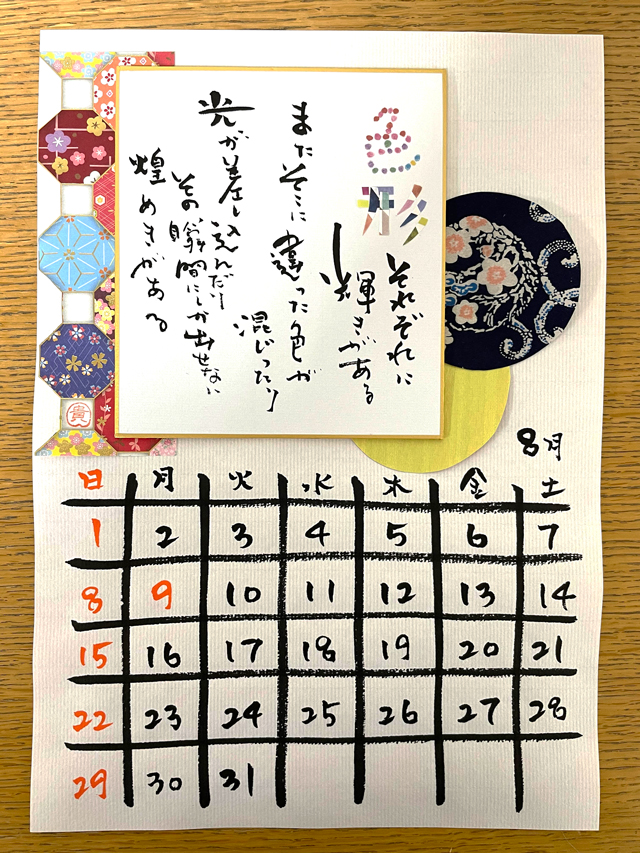 色彩
それぞれに
輝きがある
またそこに違った色が
混じったり
光が差し込んだり
その瞬間にしか出せない
煌めきがある
貴
8月
日 月 火 水 木 金 土
1 2 3 4 5 6 7
8 9 10 11 12 13 14
15 16 17 18 19 20 21
22 23 24 25 26 27 28
29 30 31